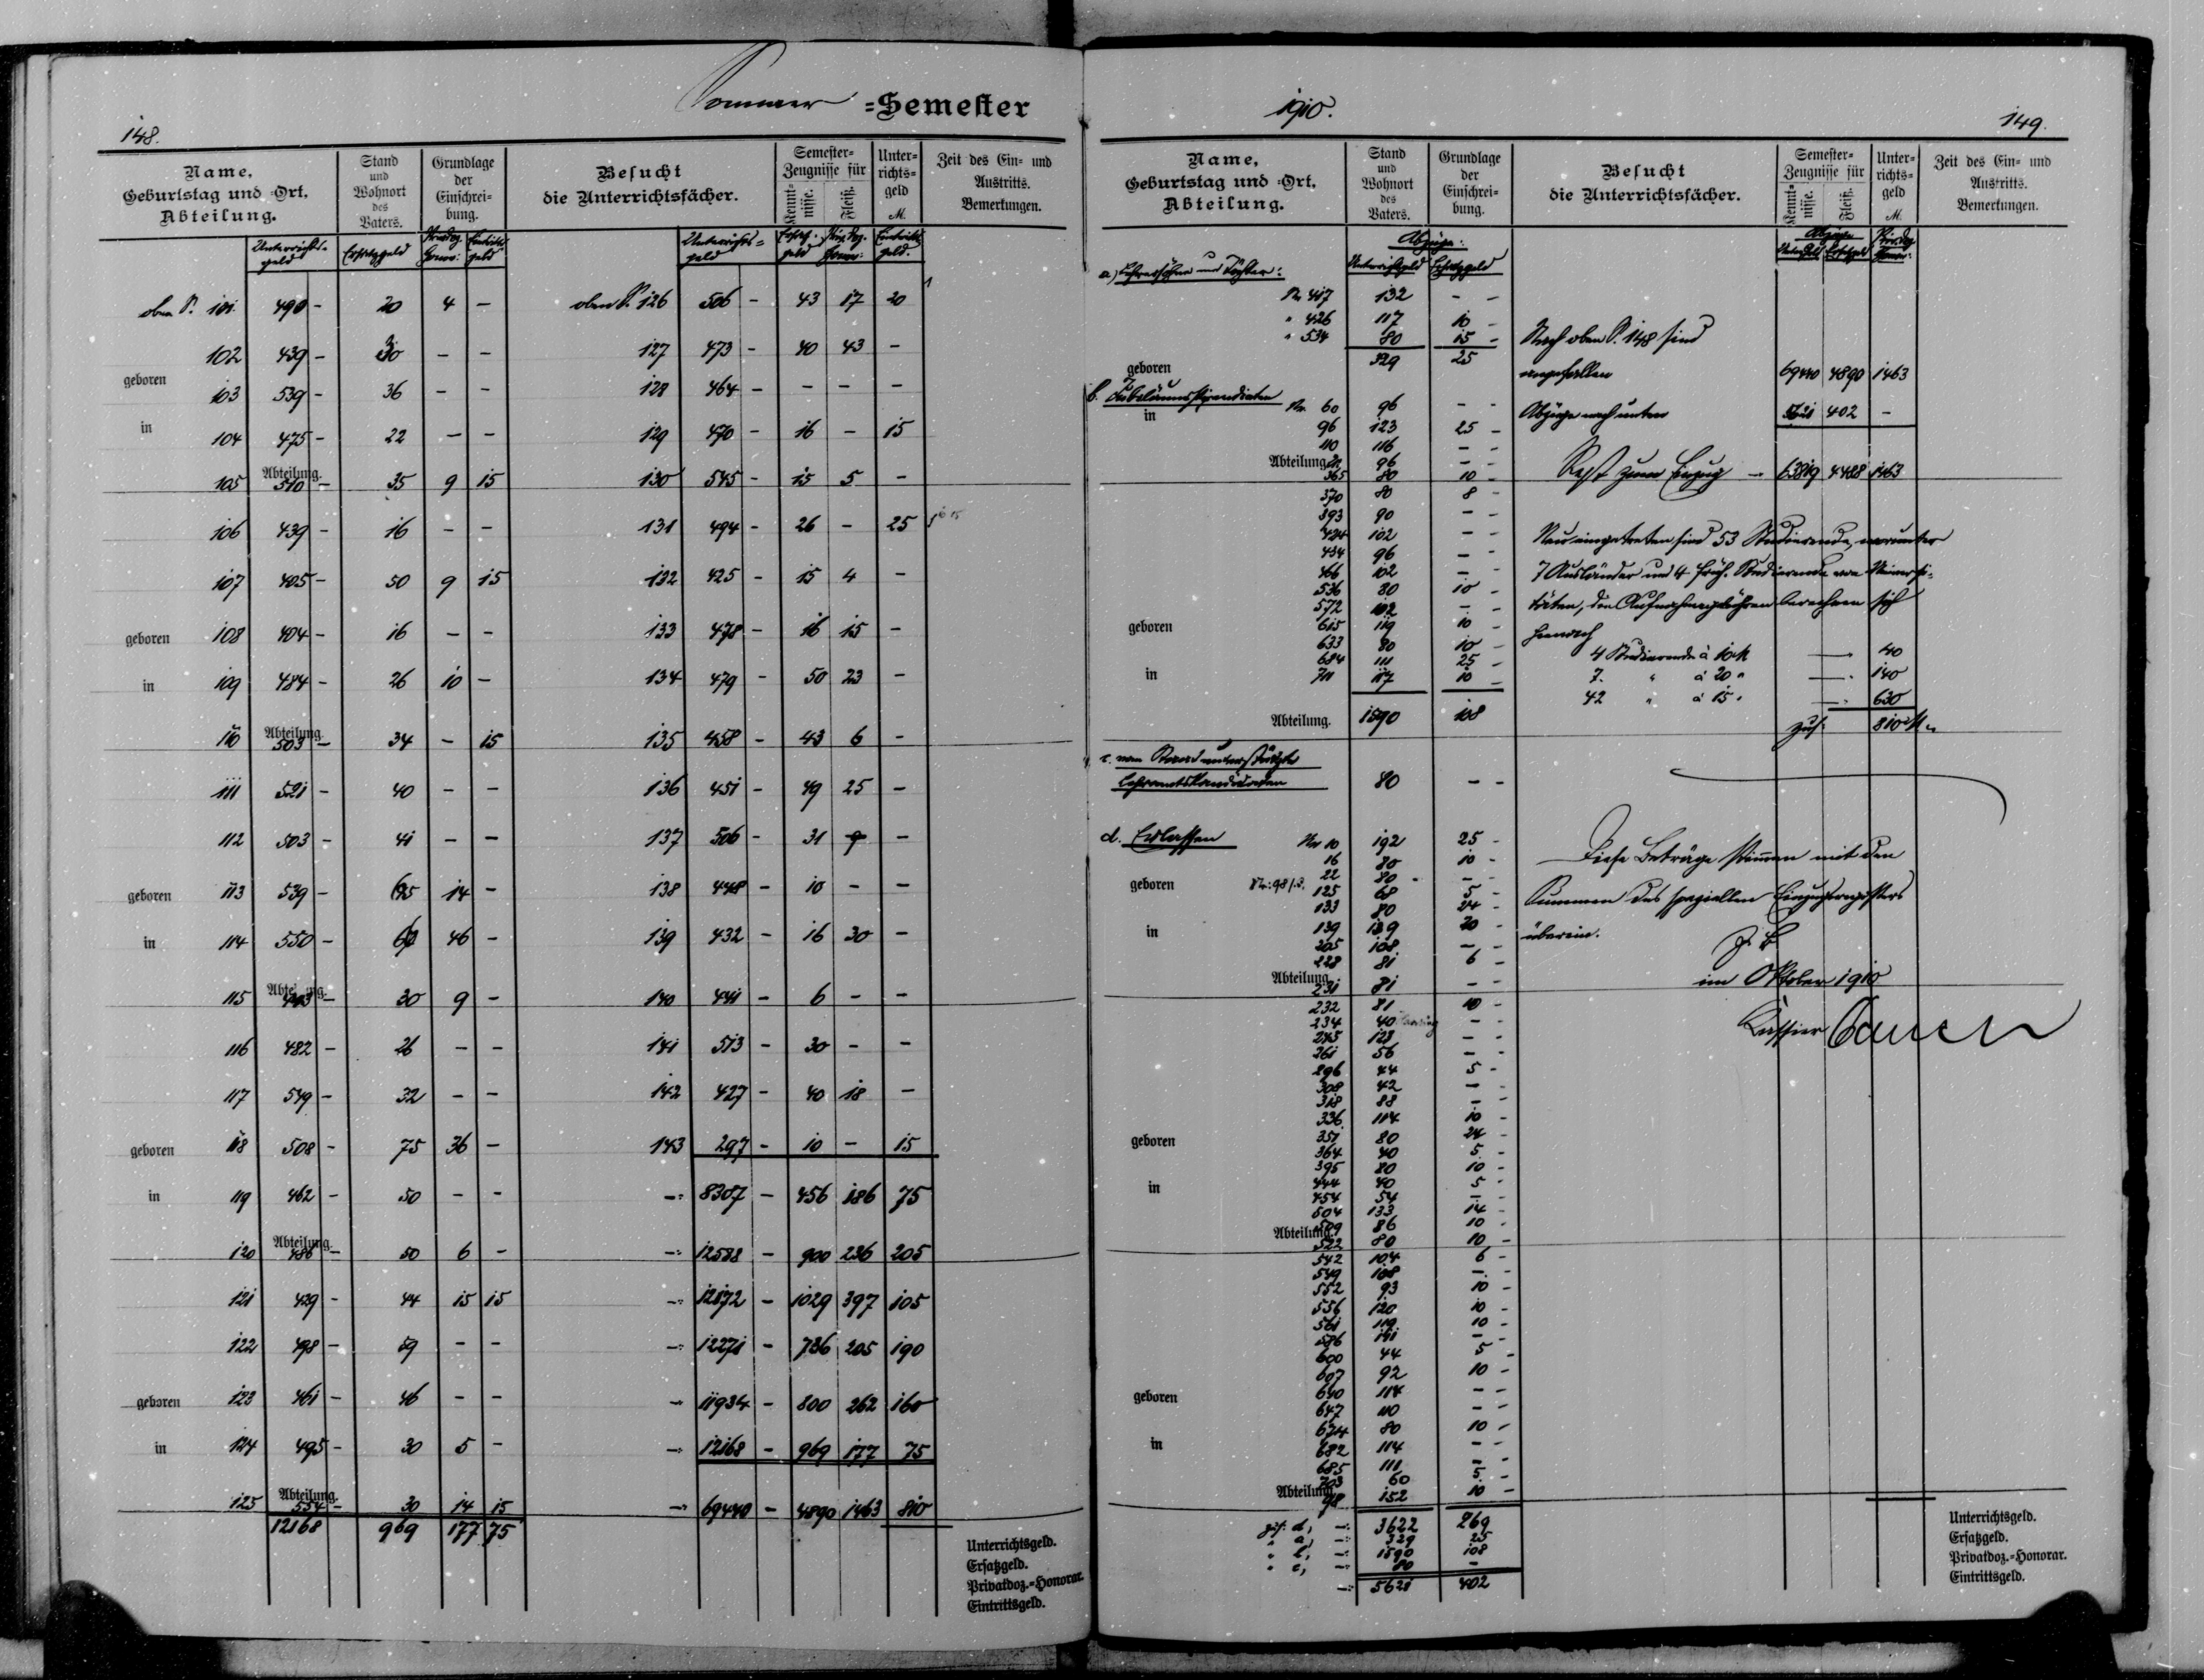 Sommer =Semester
148.
Name, Geburtstag und =Ort. Abteilung.
Stand und Wohnort des Vaters.
Grundlage der Einschrei= bung.
Besucht die Unterrichtsfächer.
Semester= Zeugnisse für
Kennt= nisse. Fleiß.
Unter= richts= geld M.
Zeit des Ein= und Austritts. Bemerkungen.
Unterrichts= geld Ersatzgeld Privdoz. Honor: Eintritts geld
Unterrichts= geld Ersatz. geld Priv. Doz. Honor: Eintritts geld.
oben S. 101. 490 - 20 4 -
102 439 - 30 - -
geboren
103 539 - 36 - -
in
104 475 - 22 - -
Abteilung.
105 510 - 35 9 15
106 439 - 16 - -
107 405 - 50 9 15
geboren 108 404 - 16 - -
in 109 484 - 26 10 -
Abteilung.
110 503 - 34 - 15
111 521 - 40 - -
112 503 - 41 - -
geboren 113 539 - 65 14 -
in 114 550 - 62 46 -
115 443 - 30 9 -
116 482 - 26 - -
117 549 - 32 - -
geboren 118 508 - 75 36 -
in 119 462 - 50 - -
Abteilung.
120 486 - 50 6 -
121 429 - 44 15 15
122 498 - 59 - -
geboren 123 461 - 46 - -
in 124 495 - 30 5 -
Abteilung.
125 554 - 30 14 15
12168 969 177 75
oben S. 126 506 - 43 17 20
127 473 - 40 43 -
128 464 - - - -
129 470 - 16 - 15
130 545 - 15 5 -
131 494 - 26 - 25
132 425 - 15 4 -
133 478 - 16 15 -
134 479 - 50 23 -
135 458 - 43 6 -
136 451 - 49 25 -
137 506 - 31 - -
138 448 - 10 - -
139 432 - 16 30 -
140 441 - 6 - -
141 513 - 30 - -
142 427 - 40 18 -
143 297 - 10 - 15
-: 8307 - 456 186 75
-: 12588 - 900 236 205
-: 12172 - 1029 397 105
-: 12271 - 736 205 190
-: 11934 - 800 262 160
-: 12168 - 969 177 75
-: 69440 - 4890 1463 810
Unterrichtsgeld.
Ersatzgeld.
Privatdoz.=Honorar.
Eintrittsgeld.
1910.
149.
Name, Geburtstag und =Ort. Abteilung.
Stand und Wohnort des Vaters.
Grundlage der Einschrei= bung.
Besucht die Unterrichtsfächer.
Semester= Zeugnisse für
Kennt= nisse. Fleiß.
Unter= richts= geld M.
Zeit des Ein= und Austritts. Bemerkungen.
Abzüge:
Unterrichtsgeld Ersatzgeld
a.) Lehrersöhne und Töchter:
Nr. 417 132 - -
" 426 117 10 -
" 534 80 15 -
329 25
geboren
b. Jubiläumsstipendiaten
in
Nr. 60 96 - -
96 123 25 -
110 116 - -
Abteilung. 96 - -
365 80 10 -
370 80 8 -
393 90 - -
424 102 - -
434 96 - -
466 102 - -
536 80 10 -
572 102 - -
geboren 615 119 10 -
633 80 10 -
684 111 25 -
in 711 117 10 -
Abteilung. 1590 108
c. vom Staat unterstützte
Lehramtskandidaten 80 - -
d. Erlassen Nr 10 192 25 -
16 80 10 -
22 80 - -
geboren 125 68 5 -
133 80 24 -
in 139 139 20 -
205 108 - -
228 81 6 -
Abteilung.
231 81 - -
232 81 10 -
234 40 - -
245 128 - -
261 56 - -
296 44 5 -
308 42 - -
318 88 - -
336 114 10 -
geboren 351 80 24 -
364 40 5 -
395 80 10 -
in 444 40 5 -
454 54 - -
504 133 14 -
Abteilung. 509 86 10 -
522 80 10 -
542 104 6 -
549 108 - -
552 93 10 -
556 120 10 -
561 119 10 -
586 141 - -
600 44 5 -
607 92 10 -
geboren 640 114 - -
647 110 - -
674 80 10 -
in 682 114 - -
685 111 - -
703 60 5 -
Abteilung.
98 152 10 -
zus: d, -: 3622 269
" a, -: 329 25
" b, -: 1590 108
" c, -: 80 -
-: 5621 402
Nach oben S. 148 sind
angefallen 69440 4890 1463
Abzüge nach unten 5621 402 -
Rest zum Einzug - 63819 4488 1463
Neu eingetreten sind 53 Studierende, worunter
7 Ausländer und 4 früh. Studierende von Universi=
täten, den Aufnahmegebühren berechnen sich
hienach
4 Studierende à 10 M — 40
7. " à 20 " — 140
42 " à 15 " — 630
zus: 810 M
Diese Beträge stimmen mit den
Summen des speziellen Einzugsregisters
überein.
Z. B.
im Oktober 1910
Kassier
Unterrichtsgeld.
Ersatzgeld.
Privatdoz.=Honorar.
Eintrittsgeld.